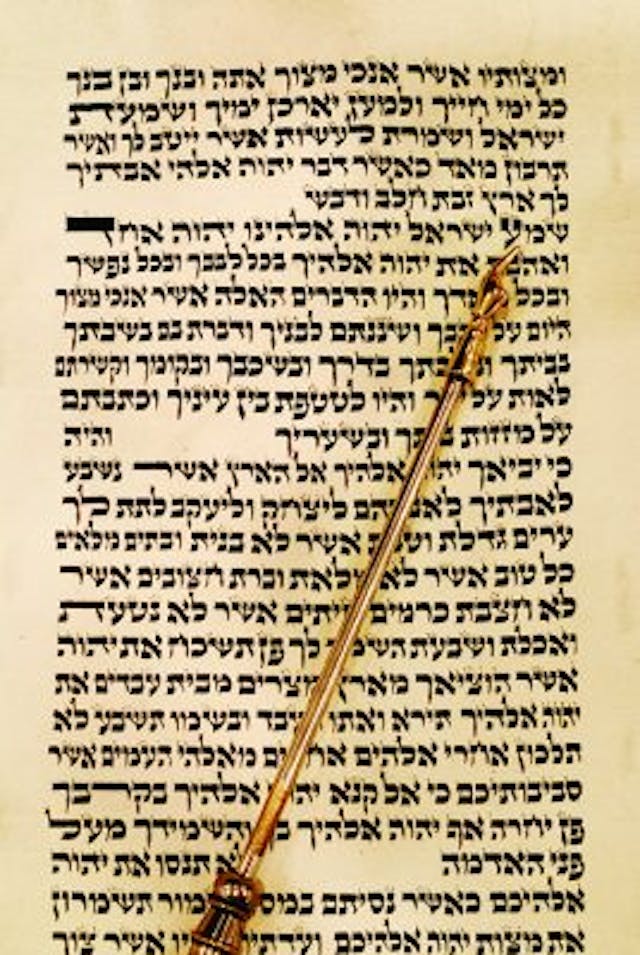 ומצותיו אשר אנכי מצוך אתה ובנך ובן בנך
כל ימי חייך ולמען יארכן ימיך ושמעת
ישראל ושמרת לעשות אשר ייטב לך ואשר
תרבון מאד כאשר דבר יהוה אלהי אבתיך
לך ארץ זבת חלב ודבש
שמע ישראל יהוה אלהינו יהוה אחד
ואהבת את יהוה אלהיך בכל לבבך ובכל נפשך
ובכל והיו הדברים האלה אשר אנכי מצוך
היום על ושננתם לבניך ודברת בם בשבתך
בביתך בדרך ובשכבך ובקומך וקשרתם
לאות על והיו לטטפת בין עיניך וכתבתם
על מזזות ובשעריך והיה
כי יביאך אלהיך אל הארץ אשר נשבע
לאבתיך ליצחק וליעקב לתת לך
ערים גדלת אשר לא בנית ובתים מלאים
כל טוב אשר לא מלאת וברת חצובים אשר
לא חצבת כרמים אשר לא נטעת
ואכלת ושבעת השמר לך פן תשכח את יהוה
אשר הוציאך מארץ מצרים מבית עבדים את
יהוה אלהיך תירא ואתו ובשמו תשבע לא
תלכון אחרי אלהים מאלהי העמים אשר
סביבותיכם כי אל קנא אלהיך בקרבך
פן יחרה אף יהוה אלהיך והשמידך מעל
פני האדמה תנסו את יהוה
אלהיכם כאשר נסיתם תשמרון
את מצות יהוה אלהיכם אשר צוך